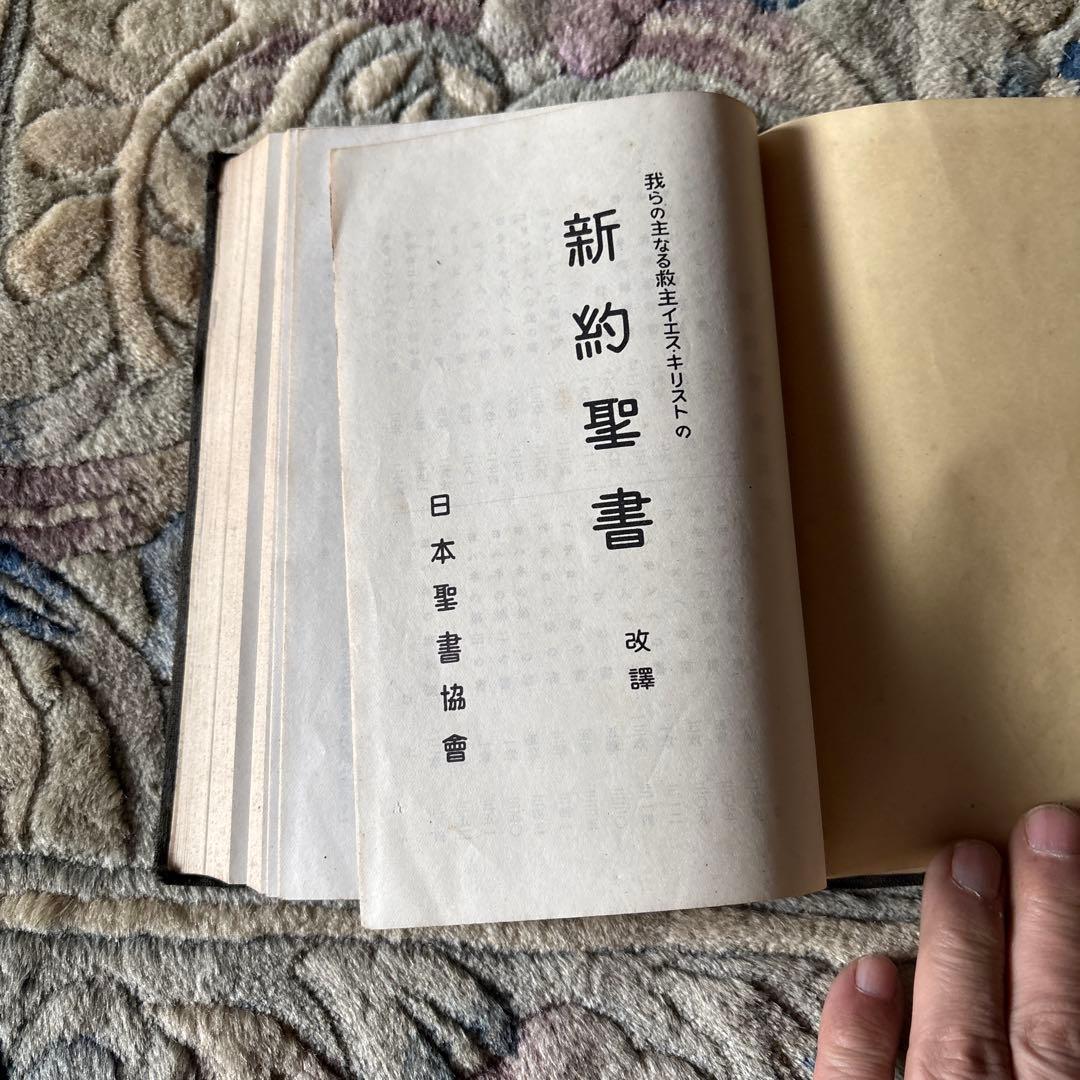 我らの主なる救主イエス・キリストの
新約聖書
改譯
日本聖書協會